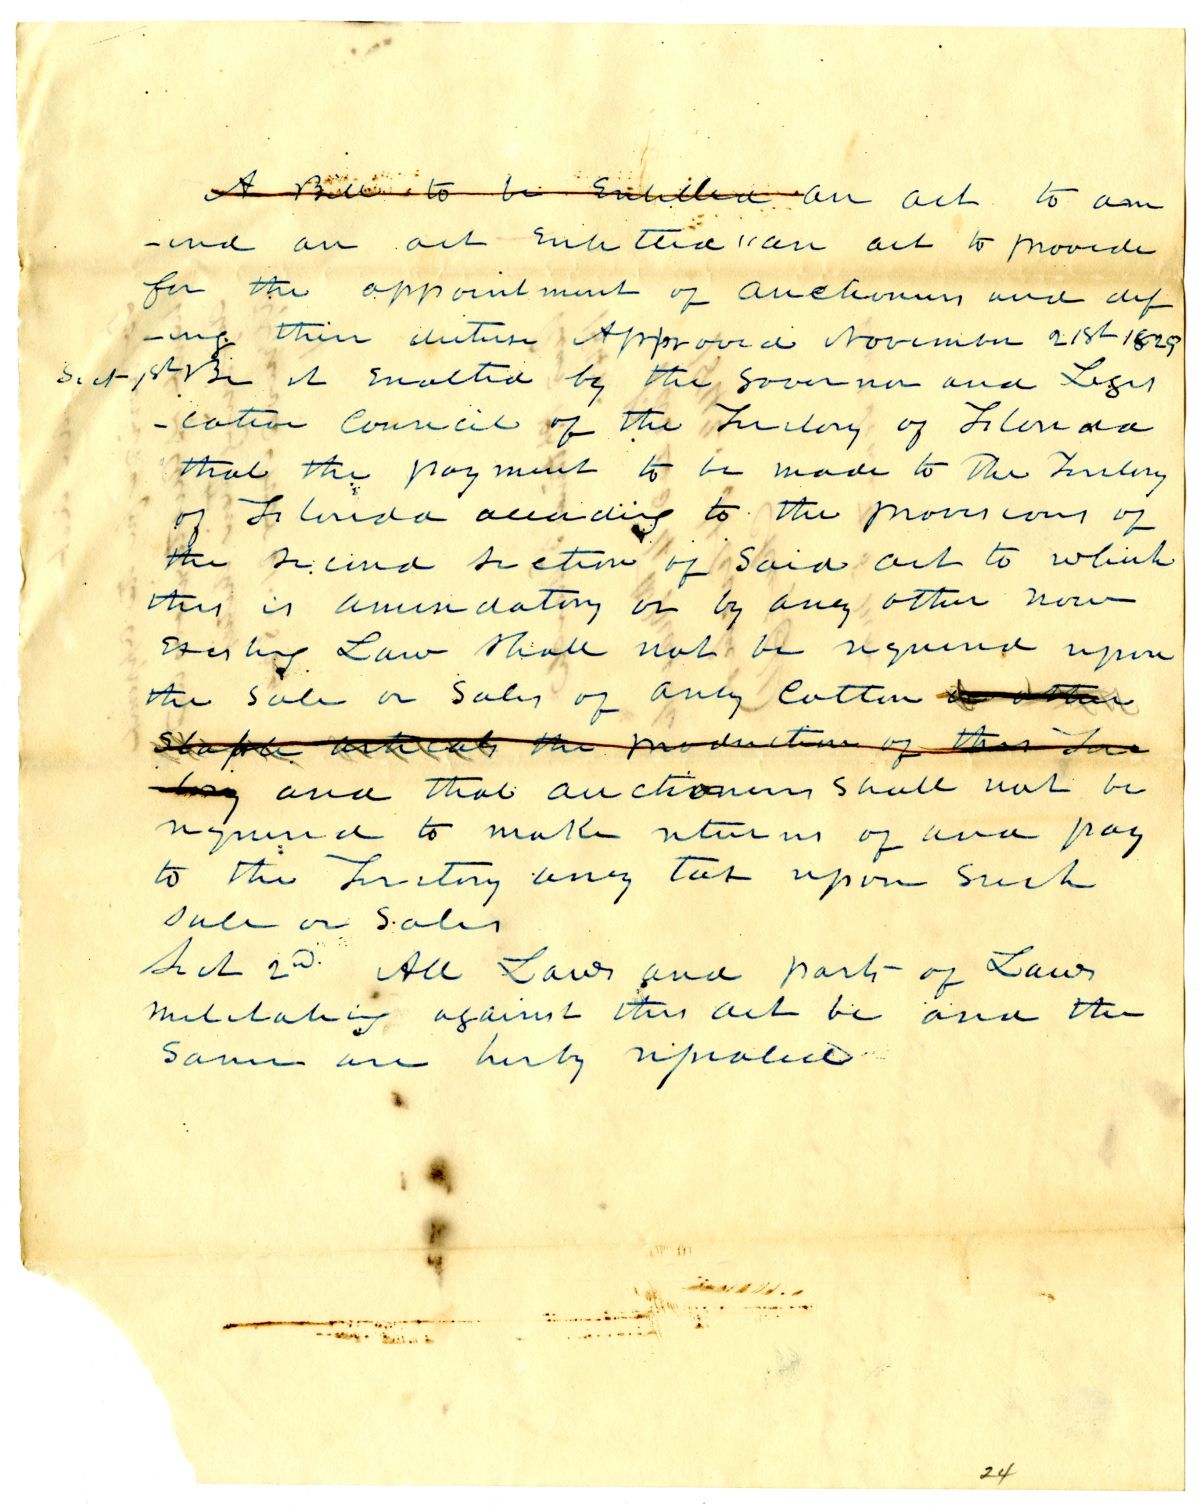 A Bill to be Entitled An act to am
-end an act Entitled "an act to provide
for the appointment of auctioneers and def
-ing their duties Approved November 21st 1829
Sect 1st Be it Enacted by the Governor and Legis
-lative Council of the Territory of Florida
that the payment to be made to The Territory
of Florida according to the provisions of
the second section of Said act to which
this is amendatory or by any other now
Existing Law shall not be required upon
the Sale or Sales of any Cotton or other
Staple articals the production of this Terri
tory and that auctioneers Shall not be
required to make returns of and pay
to the Territory any tax upon Such
Sale or Sales
Sect 2nd. All Laws and parts of Laws
militating against this act be and the
Same are herby repealed
24